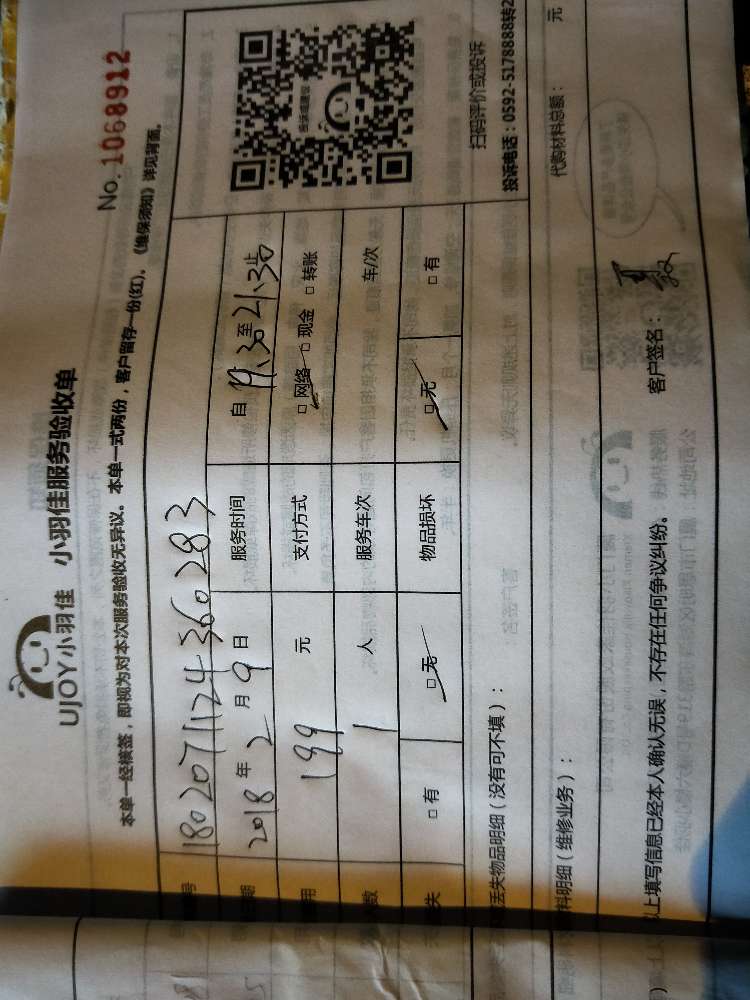 UJOY小羽佳 小羽佳服务验收单
No. 1068912
本单一经核签，即视为对本次服务验收无异议。本单一式两份，客户留存一份(红)。《维保须知》详见背面。
号 1802071124360283
期 2018年2月9日 服务时间 自19:30至21:30止
用 199 元 支付方式 □网络 □现金 □转账
人数 1 人 服务车次 车/次
失 □有 □无 物品损坏 □无 □有
扫码评价或投诉
投诉电话：0592-5178888转2
丢失物品明细（没有可不填）：
料明细（维修业务）： 代购材料总额： 元
以上填写信息已经本人确认无误，不存在任何争议纠纷。 客户签名：